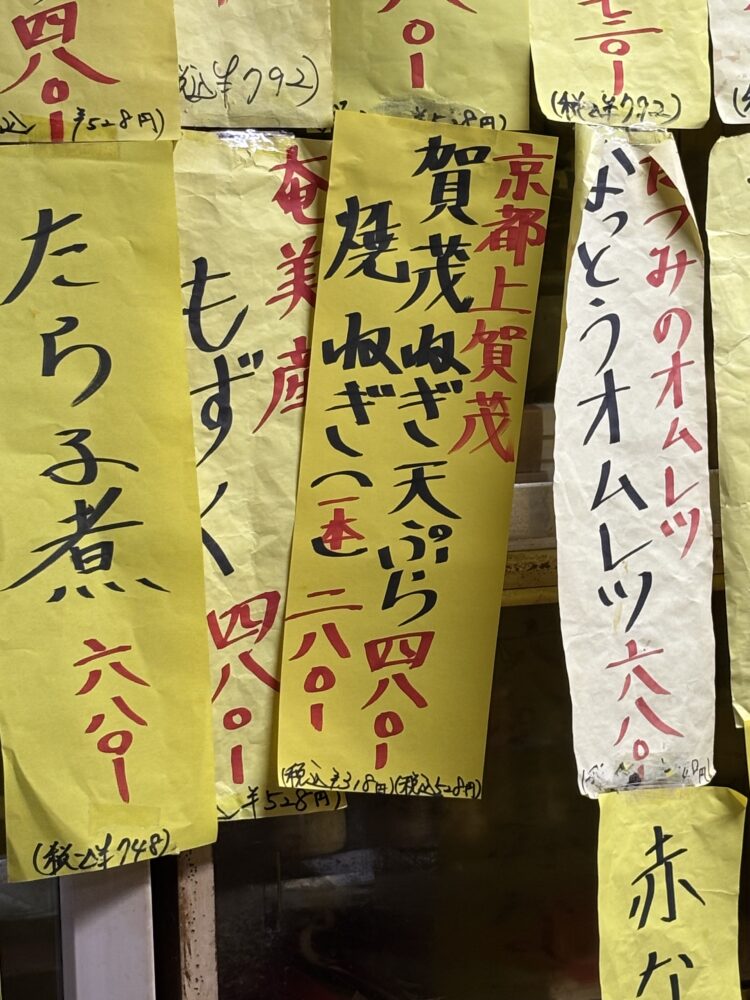 七二〇ー
(税込¥792)
〇ー
¥528円)
税込¥792)
四八〇ー
込¥528円)
たつみのオムレツ
なっとうオムレツ 六八〇ー
京都上賀茂
賀茂ねぎ天ぷら 四八〇ー
(税込528円)
焼ねぎ(一本) 二八〇ー
(税込¥318円)
奄美産
もずく 四八〇ー
¥528円)
たら子煮 六八〇ー
(税込¥748)
赤な